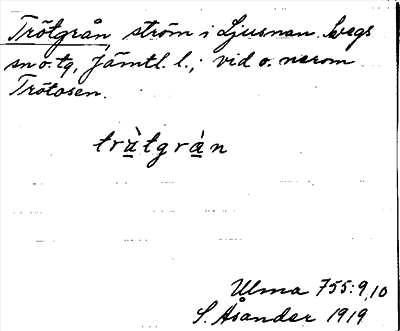 Trötgrån ström i Ljusnan. Svegs
sn o. tg, Jämtl. l.; vid o. nerom
Trötosen.
tràtgràn
Ulma 755:9,10
S. Åsander 1919